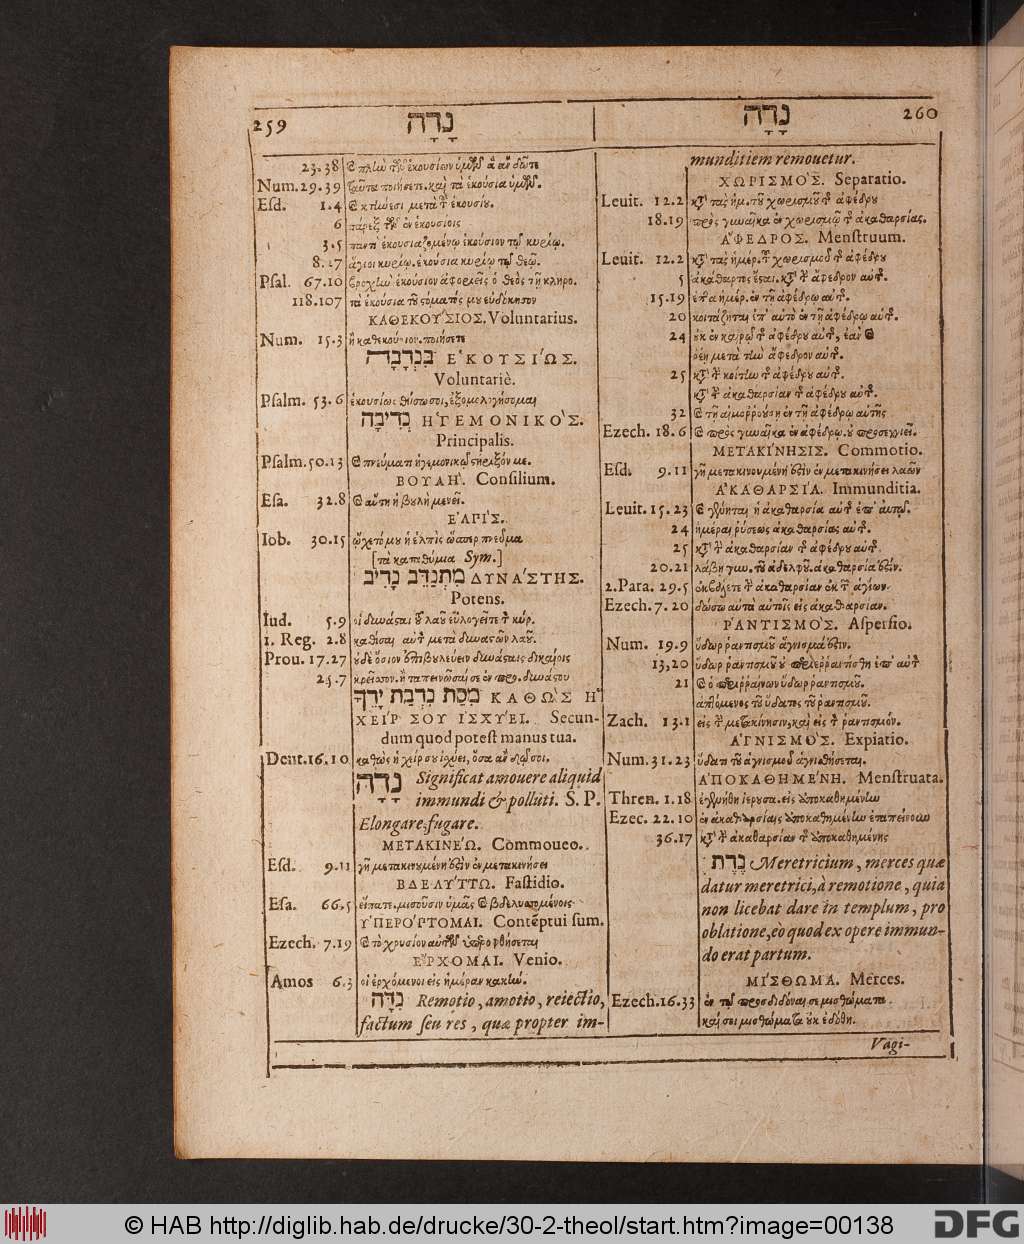 259 נָדָה
23.38 ἑκουσίων ὑμῶν ἃ ἂν δῶτε
Num. 29.39 ταῦτα ποιήσετε. καὶ τὰ ἑκούσια ὑμῶν.
Esd. 1.4 μετὰ τοῦ ἑκουσίου.
6 πάρεξ τῶν ἐν ἑκουσίοις
3.5 παντὶ ἑκουσιαζομένῳ ἑκούσιον τῷ κυρίῳ.
8.27 ἅγιοι κυρίῳ. ἑκούσια κυρίῳ τῷ θεῷ.
Psal. 67.10 βροχὴν ἑκούσιον ἀφοριεῖς ὁ θεὸς τῇ κληρο.
118.107 τὰ ἑκούσια τοῦ στόματός μου εὐδόκησον
ΚΑΘΕΚΟΥΣΙΟΣ. Voluntarius.
Num. 15.3 ἢ καθεκούσιον. ποιήσετε
בִּנְדָבָה ΕΚΟΥΣΙΩΣ.
Voluntariè.
Psalm. 53.6 ἑκουσίως θύσω σοι, ἐξομολογήσομαι
נְדִיבָה ΗΓΕΜΟΝΙΚΟΣ.
Principalis.
Psalm. 50.13 πνεύματι ἡγεμονικῷ στήριξόν με.
ΒΟΥΛΗ. Consilium.
Esa. 32.8 αὕτη ἡ βουλὴ μενεῖ.
ΕΛΠΙΣ.
Iob. 30.15 ᾤχετό μου ἡ ἐλπὶς ὥσπερ πνεῦμα
[τὰ καταθύμια Sym.]
מִתְנַדֵּב נָדִיב ΔΥΝΑΣΤΗΣ.
Potens.
Iud. 5.9 οἱ δυνάσται τοῦ λαοῦ εὐλογεῖτε τὸν κύρ.
1. Reg. 2.8 καθίσαι αὐτὸν μετὰ δυναστῶν λαοῦ.
Prou. 17.27 οὐδὲ ὅσιον ἐπιβουλεύειν δυνάσταις δικαίοις
25.7 κρεῖσσον. ἢ ταπεινῶσαί σε ἐν προ. δυνάστου
מִסַּת נִדְבַת יָדְךָ ΚΑΘΩΣ Η
ΧΕΙΡ ΣΟΥ ΙΣΧΥΕΙ. Secun-
dum quod potest manus tua.
Deut. 16.10 καθὼς ἡ χείρ σου ἰσχύει, ὅσα ἂν δῷ σοι.
נָדָה Significat amouere aliquid
immundi & polluti. S. P.
Elongare, fugare.
ΜΕΤΑΚΙΝΕΩ. Commoueo.
Esd. 9.11 γῆ μετακινουμένη ἐστὶν ἐν μετακινήσει
ΒΔΕΛΥΤΤΩ. Fastidio.
Esa. 66.5 εἴπατε. μισοῦσιν ὑμᾶς βδελυττομένοις
ΥΠΕΡΟΠΤΟΜΑΙ. Contẽptui sum.
Ezech. 7.19 τὸ χρυσίον αὐτῶν ὑπεροφθήσεται
ΕΡΧΟΜΑΙ. Venio.
Amos 6.3 οἱ ἐρχόμενοι εἰς ἡμέραν κακήν.
נִדָּה Remotio, amotio, reiectio,
factum seu res, quæ propter im-
נָדָה 260
munditiem remouetur.
ΧΩΡΙΣΜΟΣ. Separatio.
Leuit. 12.2 κατὰ τὰς ἡμ. τοῦ χωρισμοῦ τῆς ἀφέδρου
18.19 πρὸς γυναῖκα ἐν χωρισμῷ τῆς ἀκαθαρσίας.
ΑΦΕΔΡΟΣ. Menstruum.
Leuit. 12.2 κατὰ τὰς ἡμέρ. τοῦ χωρισμοῦ τῆς ἀφέδρου
5 ἀκάθαρτος ἔσται. κατὰ τὴν ἄφεδρον αὐτῆς.
15.19 ἑπτὰ ἡμέρ. ἐν τῇ ἀφέδρῳ αὐτῆς.
20 κοιτάζηται ἐπ' αὐτὸ ἐν τῇ ἀφέδρῳ αὐτῆς.
24 οὐκ ἐν καιρῷ τῆς ἀφέδρου αὐτῆς, ἐὰν
ῥέῃ μετὰ τὴν ἄφεδρον αὐτῆς.
25 κατὰ τὴν κοίτην τῆς ἀφέδρου αὐτῆς.
κατὰ τὴν ἀκαθαρσίαν τῆς ἀφέδρου αὐτῆς.
32 τῇ αἱμορροούσῃ ἐν τῇ ἀφέδρῳ αὐτῆς
Ezech. 18.6 πρὸς γυναῖκα ἐν ἀφέδρῳ. οὐ προσεγγιεῖ.
ΜΕΤΑΚΙΝΗΣΙΣ. Commotio.
Esd. 9.11 γῆ μετακινουμένη ἐστὶν ἐν μετακινήσει λαῶν
ΑΚΑΘΑΡΣΙΑ. Immunditia.
Leuit. 15.23 γένηται ἡ ἀκαθαρσία αὐτῆς ἐπ' αὐτῷ.
24 ἡμέραι ῥύσεως ἀκαθαρσίας αὐτῆς.
25 κατὰ τὴν ἀκαθαρσίαν τῆς ἀφέδρου αὐτῆς.
20.21 λάβῃ γυν. τοῦ ἀδελφοῦ. ἀκαθαρσία ἐστίν.
2. Para. 29.5 ἐκβάλετε τὴν ἀκαθαρσίαν ἐκ τῶν ἁγίων.
Ezech. 7.20 δώσω αὐτὰ αὐτοῖς εἰς ἀκαθαρσίαν.
ΡΑΝΤΙΣΜΟΣ. Aspersio.
Num. 19.9 ὕδωρ ῥαντισμοῦ ἅγνισμά ἐστιν.
13,20 ὕδωρ ῥαντισμοῦ οὐ περιερραντίσθη ἐπ' αὐτὸν
21 ὁ περιρραίνων ὕδωρ ῥαντισμοῦ.
ἁπτόμενος τοῦ ὕδατος τοῦ ῥαντισμοῦ.
Zach. 13.1 εἰς τὴν μετακίνησιν, καὶ εἰς τὸν ῥαντισμόν.
ΑΓΝΙΣΜΟΣ. Expiatio.
Num. 31.23 ὕδατι τοῦ ἁγνισμοῦ ἁγνισθήσεται.
ΑΠΟΚΑΘΗΜΕΝΗ. Menstruata.
Thren. 1.18 ἐγενήθη ἱερουσα. εἰς ἀποκαθημένην
Ezec. 22.10 ἐν ἀκαθαρσίαις ἀποκαθημένην ἐταπείνουν
36.17 κατὰ τὴν ἀκαθαρσίαν τῆς ἀποκαθημένης
נֵדֶה Meretricium, merces quæ
datur meretrici, à remotione, quia
non licebat dare in templum, pro
oblatione, eò quod ex opere immun-
do erat partum.
ΜΙΣΘΩΜΑ. Merces.
Ezech. 16.33 ἐν τῷ προσδιδόναι σε μισθώματα.
καὶ σοι μισθώματα οὐκ ἐδόθη.
Vagi-
© HAB http://diglib.hab.de/drucke/30-2-theol/start.htm?image=00138
DFG